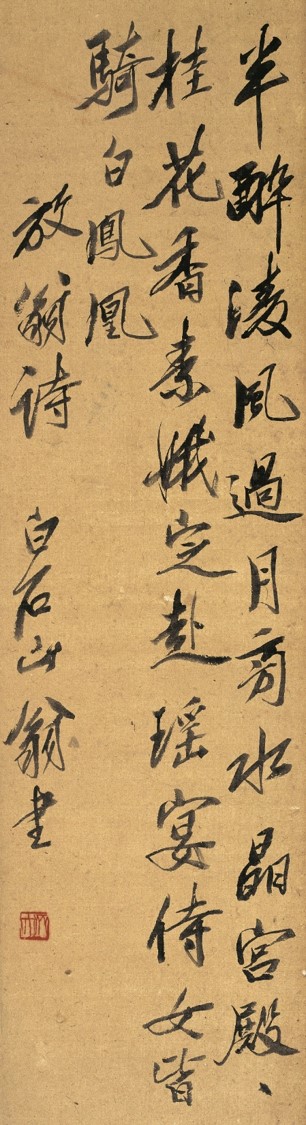 半醉淩風過月旁水晶宮殿、
桂花香素娥定赴瑤宴侍女皆
騎白鳳凰
放翁詩 白石山翁書